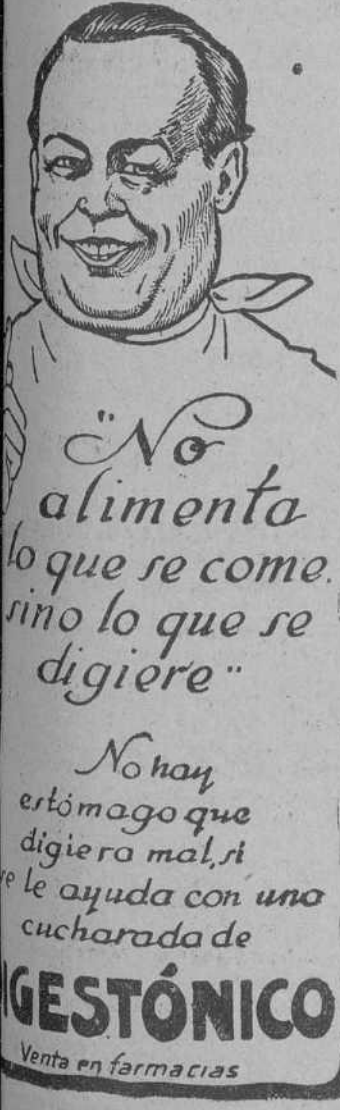 "No
alimenta
lo que se come.
sino lo que se
digiere"
No hay
estómago que
digiera mal, si
se le ayuda con una
cucharada de
IGESTÓNICO
Venta en farmacias